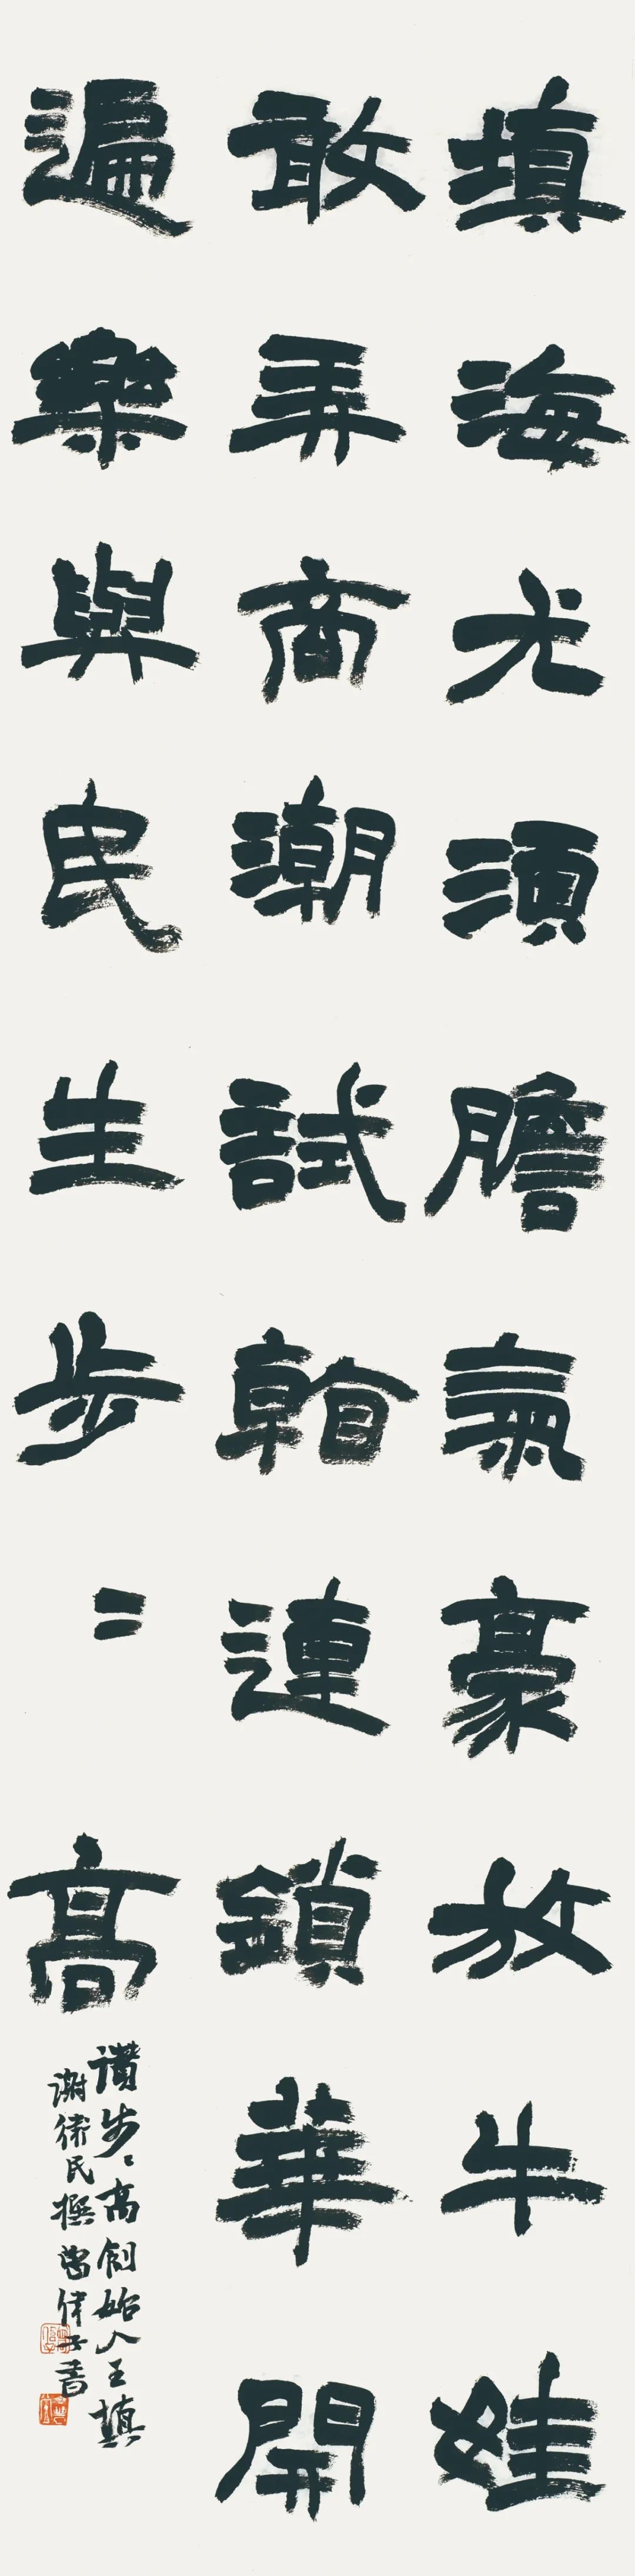 填海尤須膽氣豪放牛娃
敢弄商潮試看連鎖華開
遍樂與民生步〻高
讚步〻高創始人王填
謝衛民撰曾偉子書